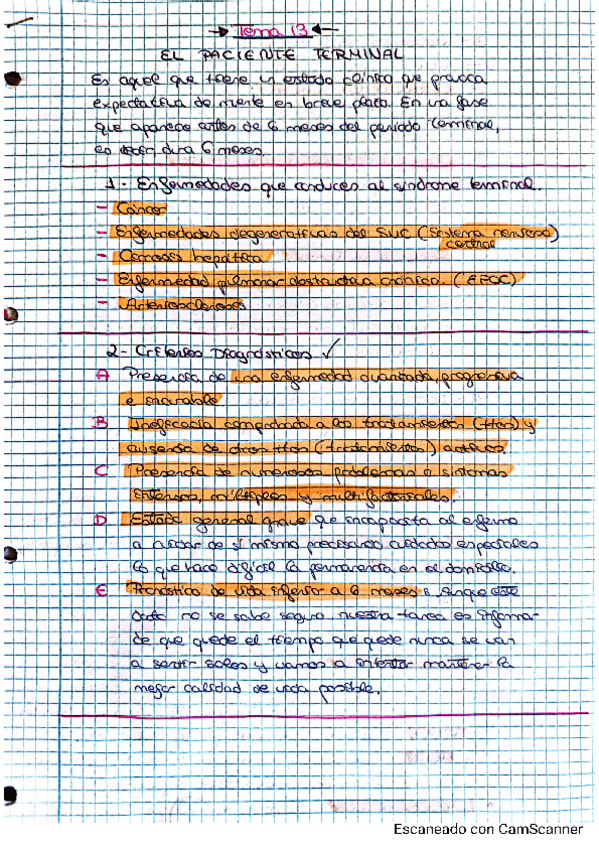 → Tema 13 ←
EL PACIENTE TERMINAL
Es aquel que tiene un estado clínico que provoca
expectativa de muerte en breve plazo. En una fase
que aparece antes de 6 meses del periodo terminal,
es decir, dura 6 meses.
1- Enfermedades que conducen al síndrome terminal.
- Cáncer
- Enfermedades degenerativas del SNC (Sistema nervioso
central)
- Cirrosis hepática
- Enfermedad pulmonar obstructiva crónica. (EPOC)
- Arterioesclerosis
2- Criterios Diagnósticos ✓
A Presencia de una enfermedad avanzada, progresiva
e incurable
B Ineficacia comprobada a los tratamientos (ttos) y
ausencia de otros ttos (tratamientos) activos.
C Presencia de numerosos problemas o síntomas
intensos, múltiples y multifactoriales.
D Estado general grave que incapacita al enfermo
a cuidar de sí mismo precisando cuidados especiales
lo que hace difícil la permanencia en el domicilio.
E Pronóstico de vida inferior a 6 meses: aunque este
dato no se sabe seguro, nuestra tarea es informar
de que quede el tiempo que quede nunca se van
a sentir solos y vamos a intentar mantener la
mejor calidad de vida posible.
Escaneado con CamScanner